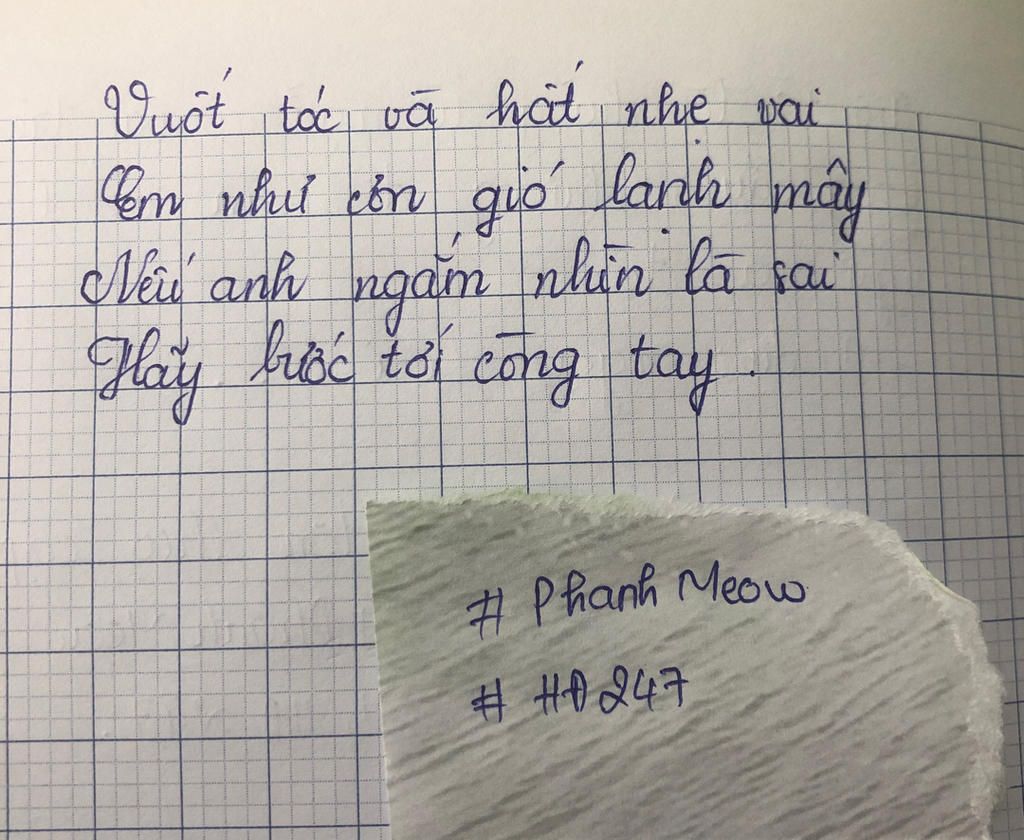 Vuốt tóc và hất nhẹ vai
Em như cơn gió lạnh mây
Nếu anh ngắm nhìn là sai
Hãy bước tới còng tay.
# Phanh Meow
# HĐ247